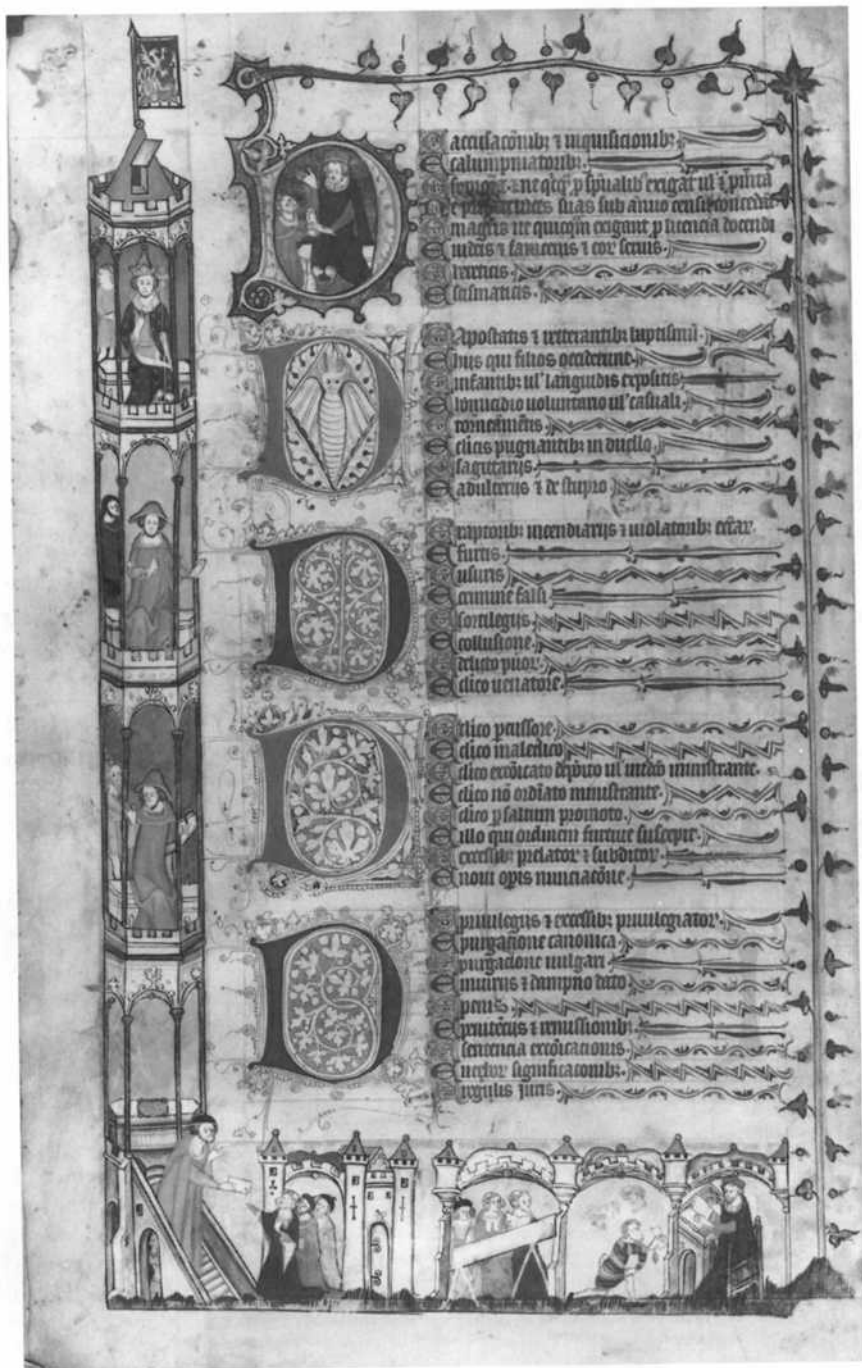 D E accusacōnibꝫ ⁊ inquisicionibꝫ
E calumpniatoribꝫ
E ne exigat ul'
E suas sub annuo censu
E magris ne quicqm exigant p licencia docendi
E iudeis ⁊ ⁊ seruis
E hereticis
E scismaticis
D E Apostatis ⁊ reiterantibꝫ baptismū
E hiis qui filios occiderunt
E infantibꝫ ul' languidis expositis
E homicidio uoluntario ul' casuali
E torneamentis
E clicis pugnantibꝫ in duello
E sagittariis
E adulteriis ⁊ de stupro
D E raptoribꝫ incendiariis ⁊ uiolatoribꝫ
E furtis
E usuris
E crimine falsi
E sortilegiis
E collusione
E delicto puor
E clico uenatore
D E clico pcussore
E clico maledico
E clico excōicato ul' ministrante
E clico nō ordīato ministrante
E clico p saltum promoto
E illo qui ordinem furtiue suscepit
E excessibꝫ prelator ⁊ subditor
E noui opis nunciacōne
D E priuilegiis ⁊ excessibꝫ priuilegiator
E purgacione canonica
E purgacione uulgari
E iniuriis ⁊ dampno dato
E penis
E ⁊ remissionibꝫ
E sentencia excōicacionis
E significacōnibꝫ
E regulis iuris